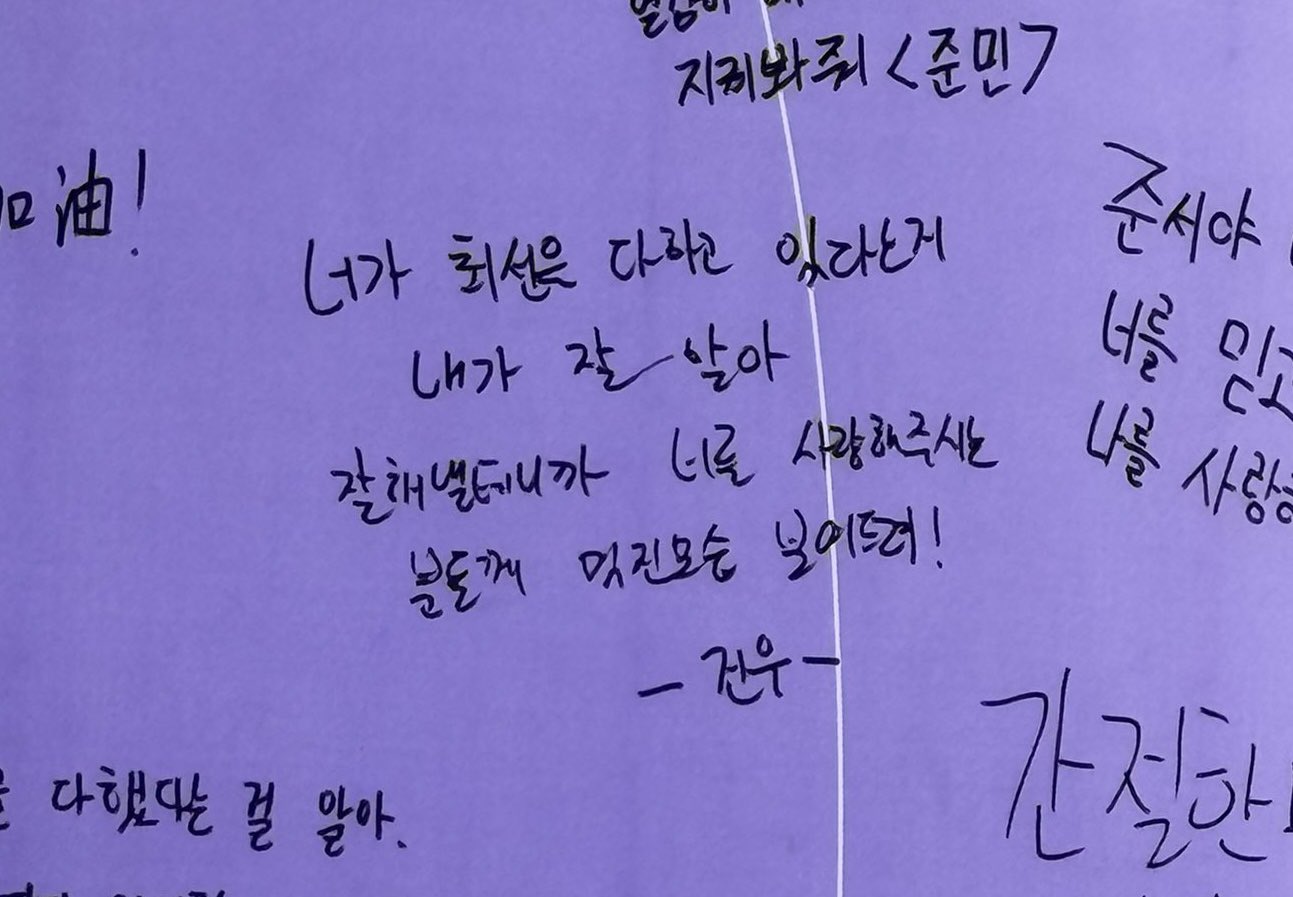 지켜봐줘 <준민>
加油!
너가 최선은 다하고 있다는거
내가 잘 알아
잘해낼테니까 너를 사랑해주시는
분들께 멋진모습 보여드려!
- 진우 -
준서야
너를 믿고
나를 사랑
다했다는 걸 알아.
간절한